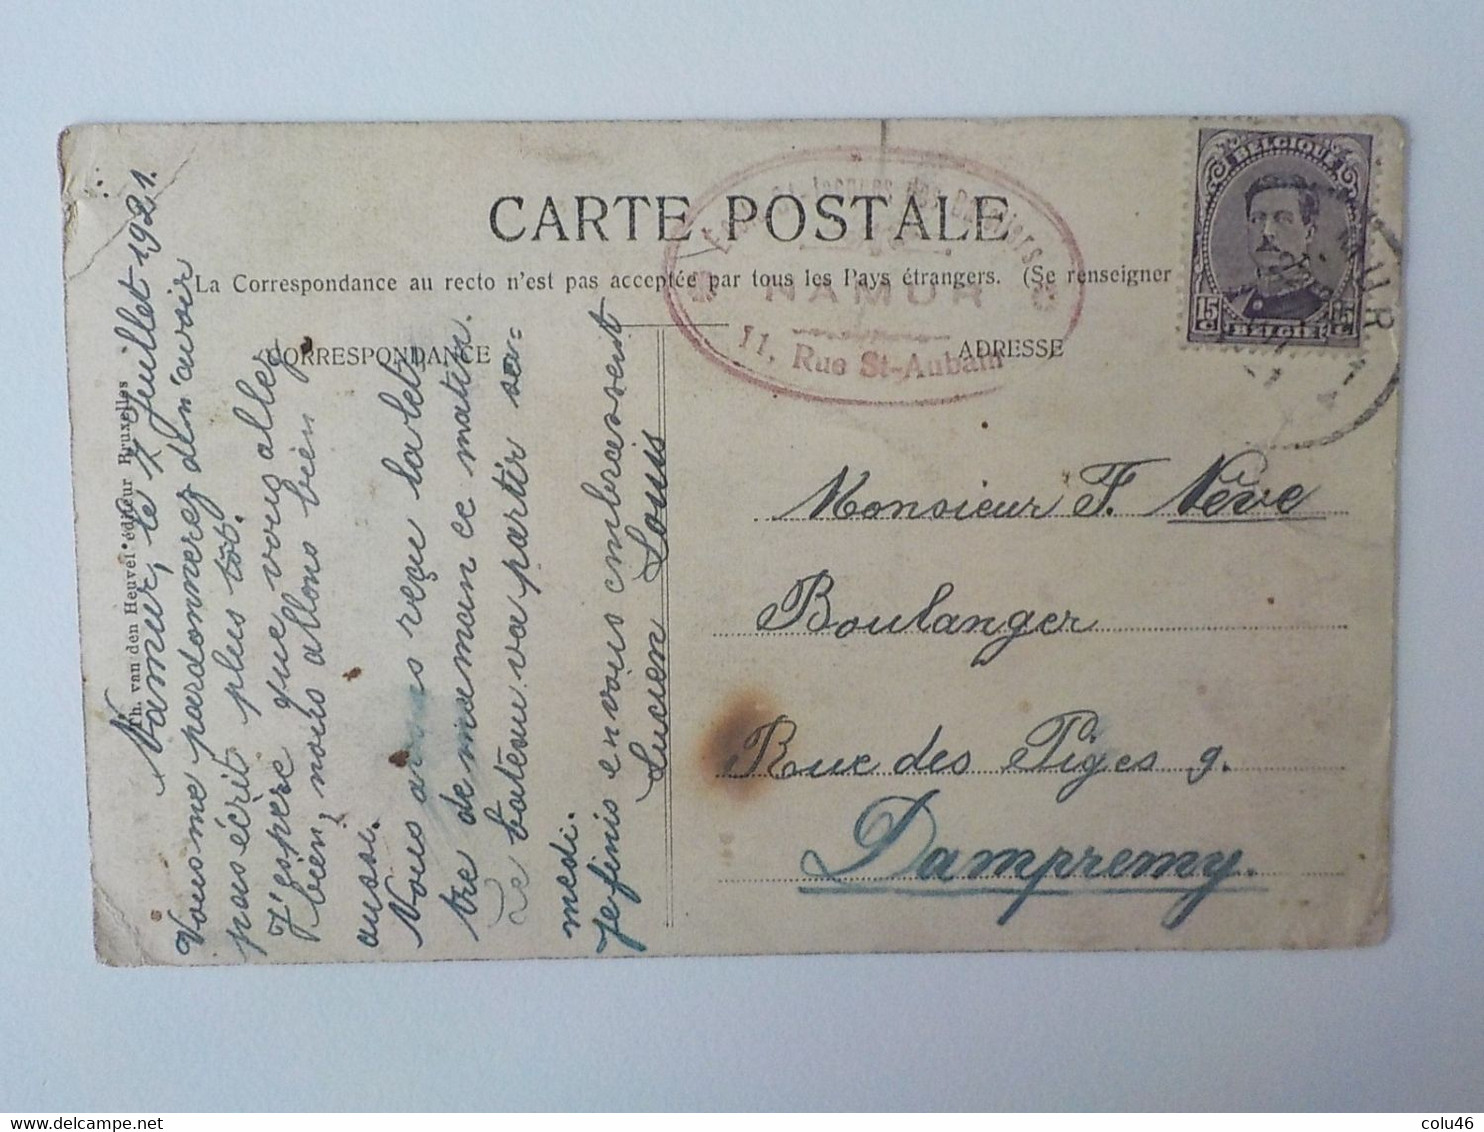 CARTE POSTALE
La Correspondance au recto n'est pas acceptée par tous les Pays étrangers. (Se renseigner
CORRESPONDANCE
ADRESSE
Th. van den Heuvel éditeur Bruxelles
Namur, le 7 Juillet 1921.
Vous me pardonnerez d'en'avoir
pas écrit plus tôt.
J'espère que vous allez
bien, nous allons bien
aussi.
Nous avons reçu la let=
tre de maman ce matin.
Le bateau va partir sa=
medi.
je finis en vous embrassent
Lucien Louis
Jacques des
NAMUR
11, Rue St-Aubain
BELGIQUE
15 C
15 C
BELGIË
Monsieur F. Nève
Boulanger
Rue des Piges 9.
Dampremy.
colu46